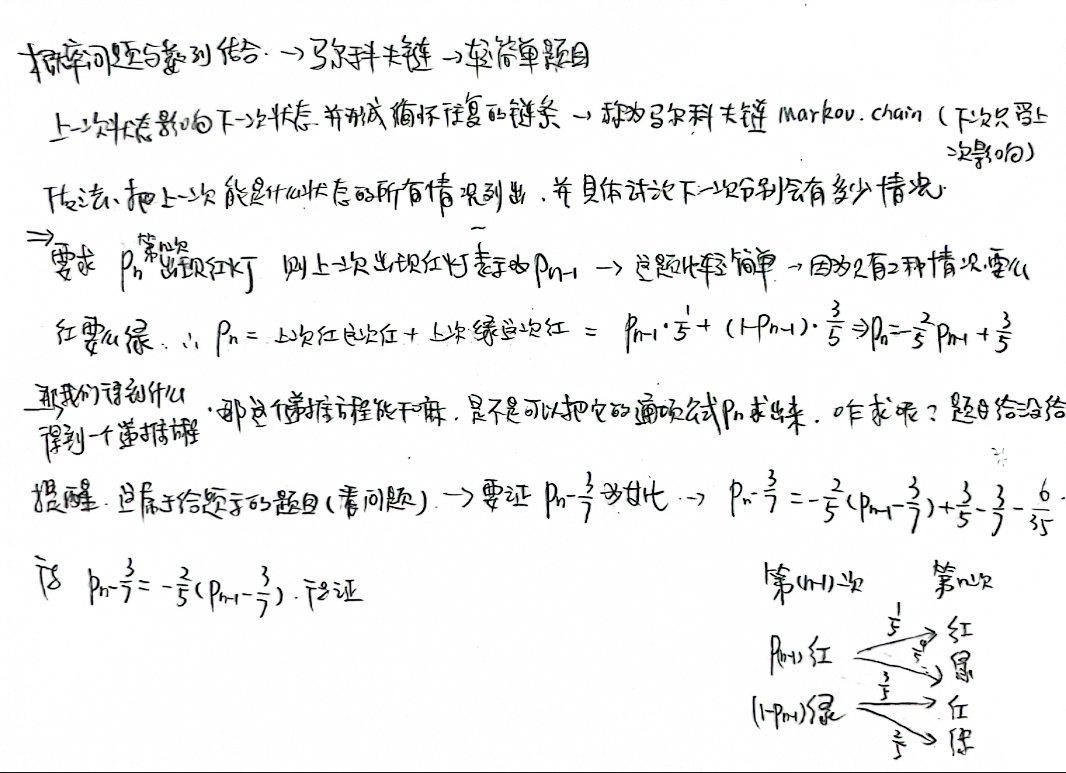 概率问题与数列结合.→马尔科夫链→较简单题目
上一次状态影响下一次状态.并形成循环往复的链条→称为马尔科夫链 markov.chain (下次只受上
次影响)
做法、把上一次能是什么状态的所有情况列出.并具体讨论下一次分别会有多少情况.
⇒要求 Pn 第n次出现红灯 则上一次出现红灯表示为Pn-1 → 这题比较简单→因为只有2种情况.要么
红要么绿.∴ Pn = 上次红这次红 + 上次绿这次红 = Pn-1·1/5 + (1-Pn-1)·3/5 ⇒Pn=-2/5Pn-1+3/5
那我们得到什么
→得到一个递推方程.那这个递推方程能干嘛.是不是可以把它的通项公式Pn求出来.咋求呢?题目给没给
提醒.这属于给提示的题目(看问题).→要证 Pn-3/7为等比.→ Pn-3/7=-2/5(Pn-1-3/7)+3/5-3/7-6/35.
得 Pn-3/7=-2/5(Pn-1-3/7).得证
第(n-1)次 第n次
P(n-1)红 1/5 红
4/5 绿
(1-Pn-1)绿 3/5 红
2/5 绿